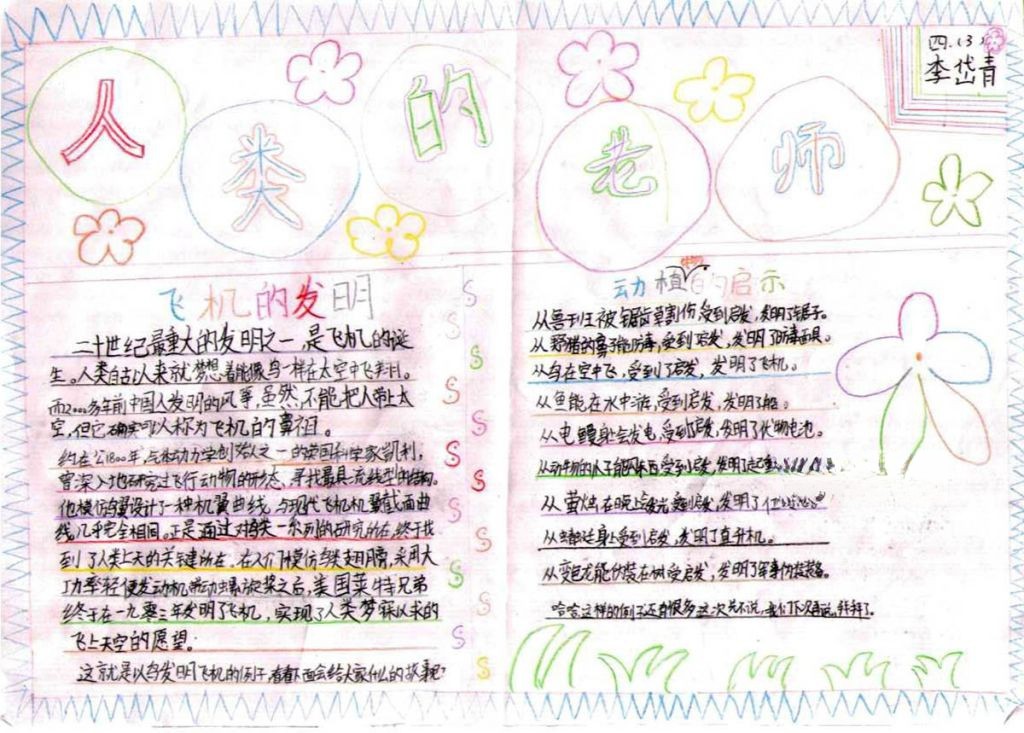 人类的老师
四.(3)
李岱青
飞机的发明
二十世纪最重大的发明之一,是飞机的诞
生。人类自古以来就梦想着能像鸟一样在太空中飞翔。
而2000多年前中国人发明的风筝,虽然不能把人带上太
空,但它确实可以称为飞机的鼻祖。
约在公1800年,气体动力学创始人之一的英国科学家凯利,
曾深入地研究过飞行动物的形态,寻找最具流线型的结构。
他模仿 设计了一种机翼曲线,与现代飞机机翼截面曲
线几乎完全相同。正是通过对 一系列的研究所在,终于找
到了人类上天的关键所在。在人们模仿 翅膀,采用大
功率轻便发动机带动螺旋桨之后,美国莱特兄弟
终于在一九零三年发明了飞机,实现了人类梦寐以求的
飞上天空的愿望。
这就是以鸟发明飞机的例子,看看下面会给大家什么的故事呢?
动植物的启示
从鲁班被锯齿草割伤受到启发,发明了锯子。
从野猪的鼻子能防毒,受到了启发,发明了防毒面具。
从鸟在空中飞,受到了启发,发明了飞机。
从鱼能在水中游,受到启发,发明了船。
从电鳗身会发电,受到启发,发明了伏特电池。
从动物的爪子能 东西受到启发,发明了起重
从萤火虫在晚上发光 受到启发,发明了
从蜻蜓身上受到启发,发明了直升机。
从变色龙能伪装在树受启发,发明了军事伪装 。
哈哈这样的例子还有很多这次先不说,我们下次再说,拜拜了。